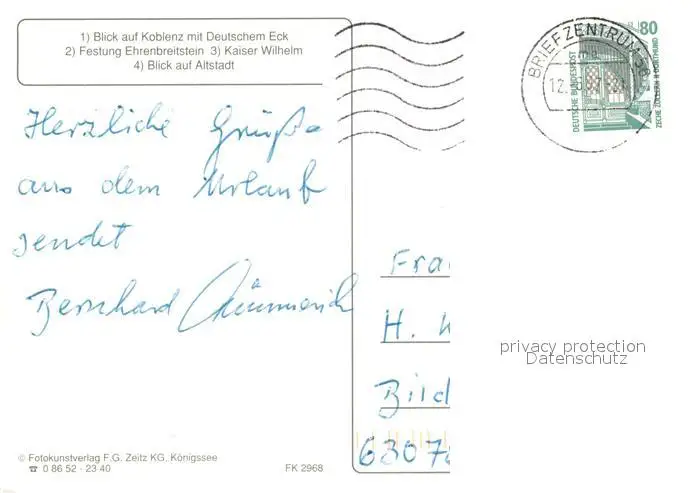 1) Blick auf Koblenz mit Deutschem Eck
2) Festung Ehrenbreitstein 3) Kaiser Wilhelm
4) Blick auf Altstadt
BRIEFZENTRUM 56
80
DEUTSCHE BUNDESPOST
ZECHE ZOLLERN II DORTMUND
Herzliche Grüße
aus dem Urlaub
sendet
Bernhard
Fra
H.
Bild
6307
privacy protection
Datenschutz
© Fotokunstverlag F.G. Zeitz KG, Königssee
☎ 0 86 52 - 23 40
FK 2968